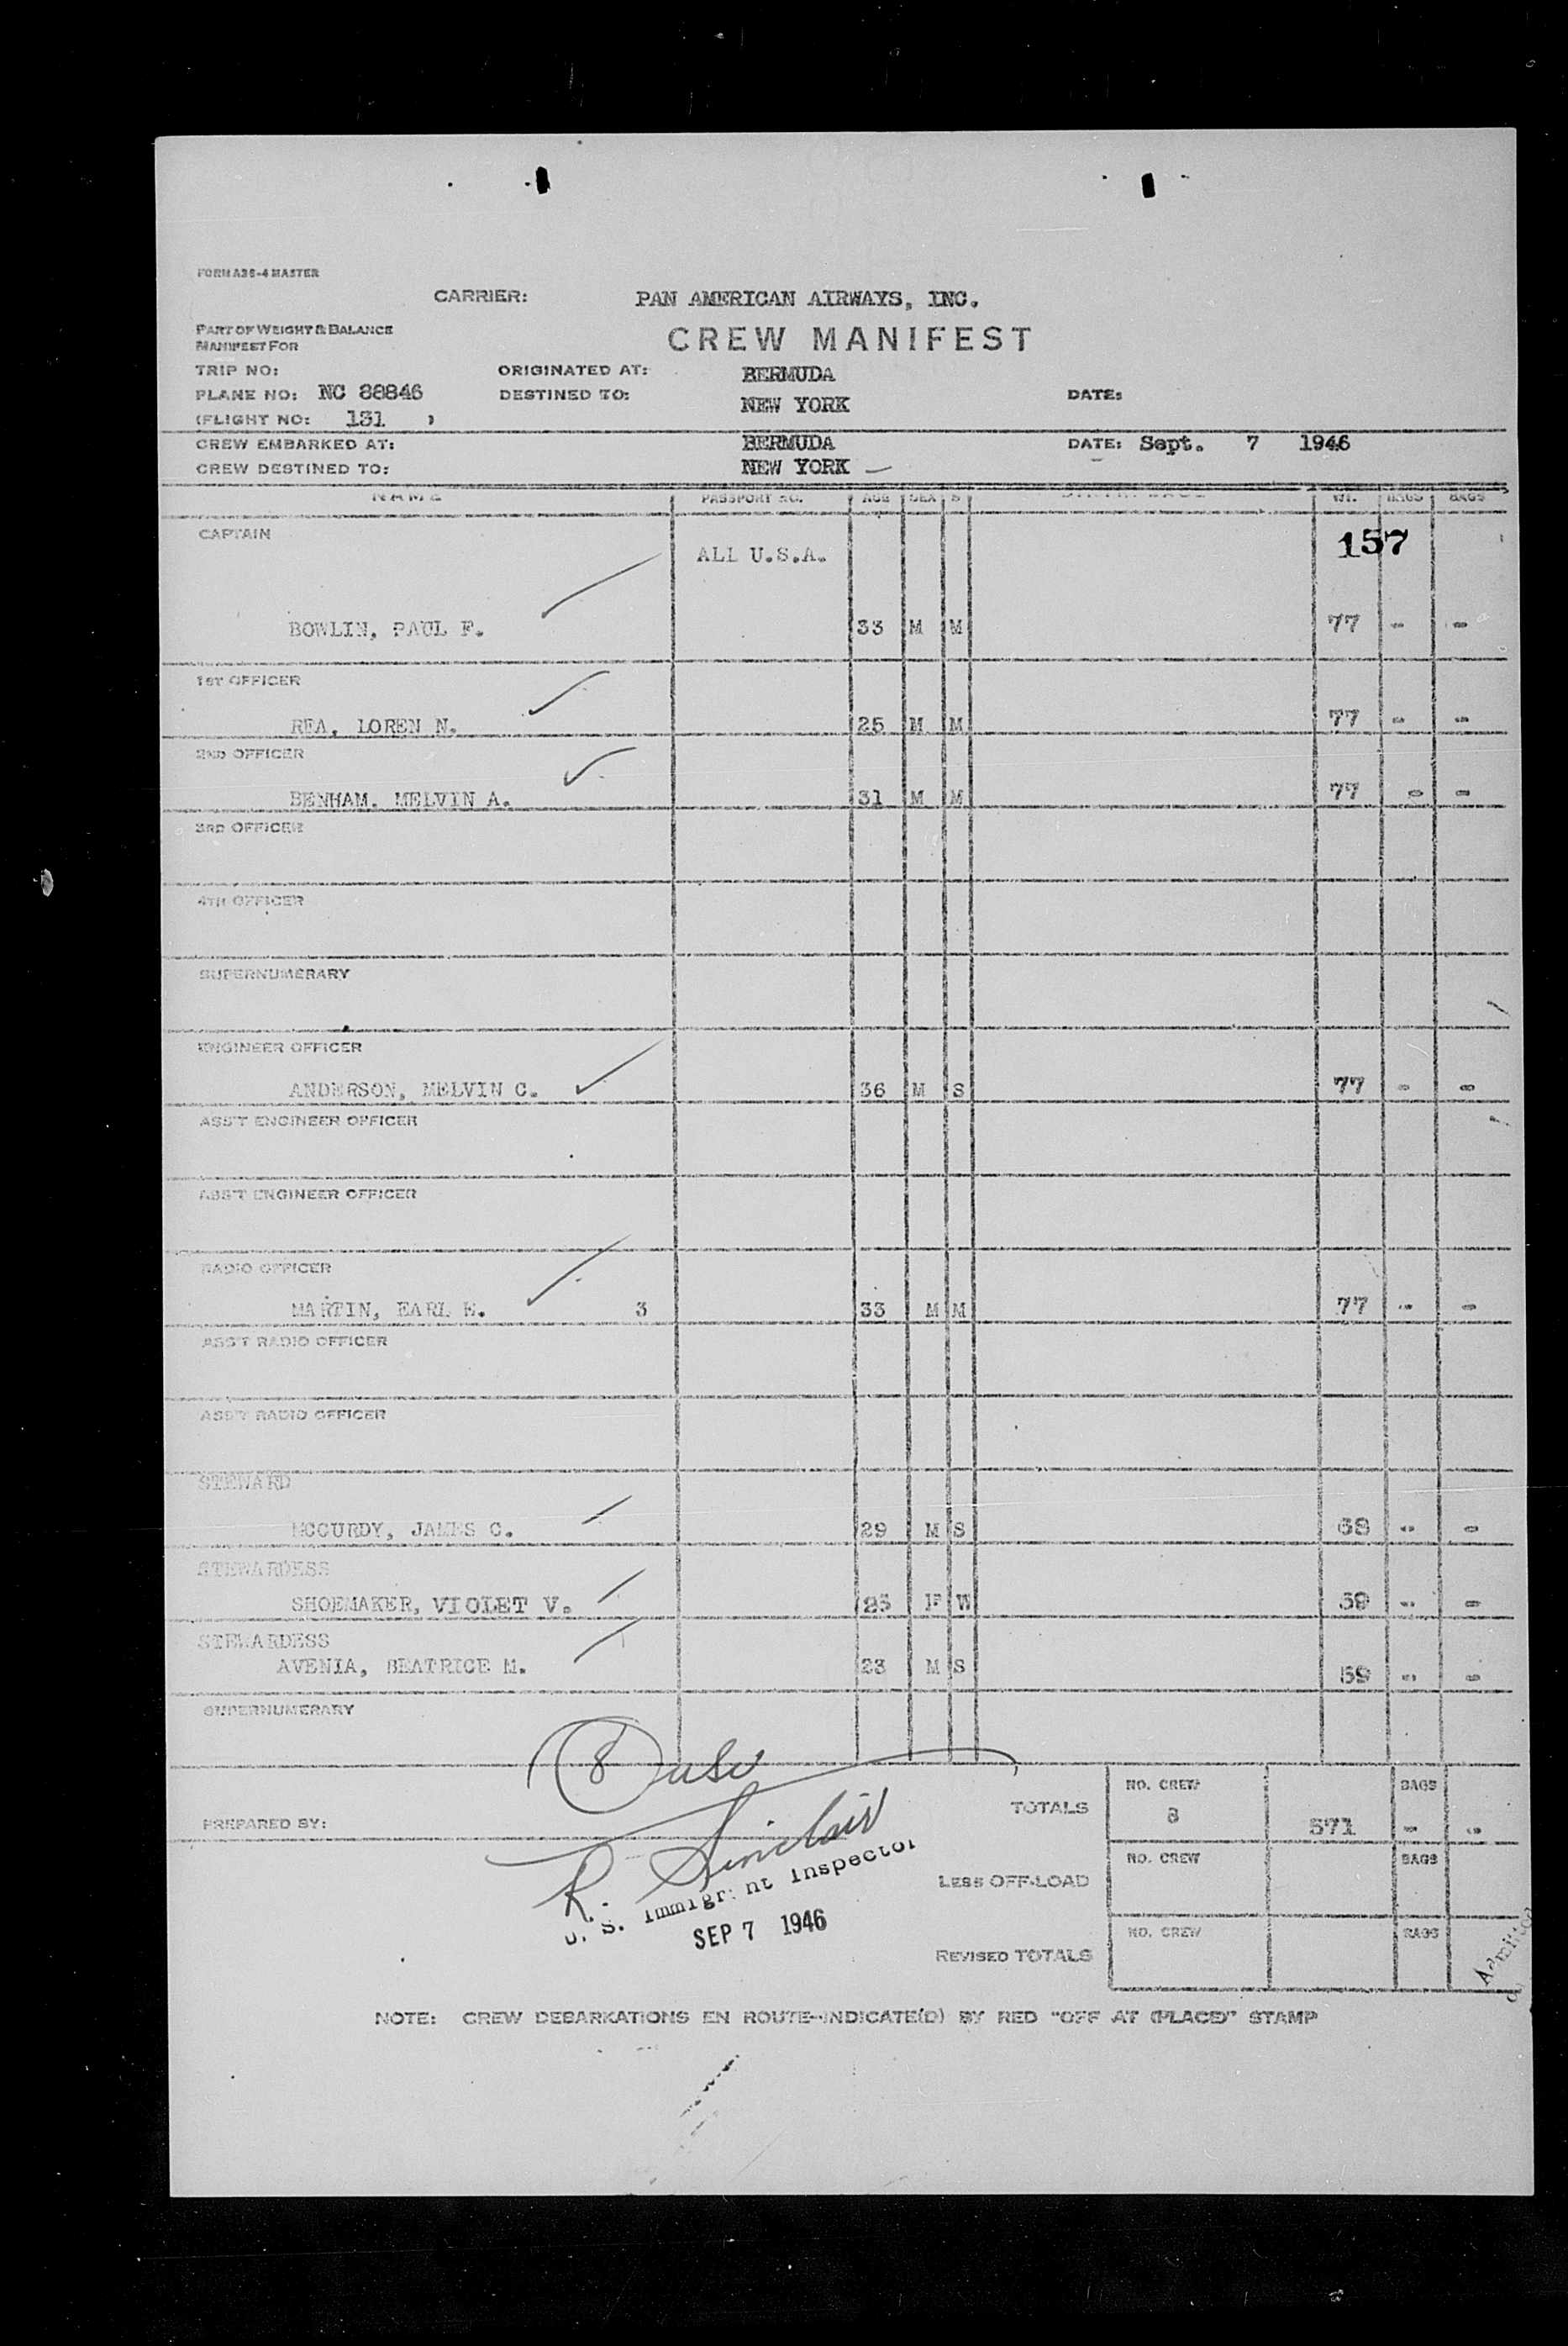 FORM A36-4 MASTER
CARRIER: PAN AMERICAN AIRWAYS, INC.
PART OF WEIGHT & BALANCE
MANIFEST FOR
CREW MANIFEST
TRIP NO: ORIGINATED AT: BERMUDA
PLANE NO: NC 88846 DESTINED TO: NEW YORK DATE:
(FLIGHT NO: 131 )
CREW EMBARKED AT: BERMUDA DATE: Sept. 7 1946
CREW DESTINED TO: NEW YORK
NAME PASSPORT NO. AGE SEX S WT. BAGS BAGS
CAPTAIN 157
ALL U.S.A.
BOWLIN, PAUL F. 33 M M 77 - -
1ST OFFICER
REA, LOREN N. 25 M M 77 - -
2ND OFFICER
BENHAM. MELVIN A. 31 M M 77 - -
3RD OFFICER
4TH OFFICER
SUPERNUMERARY
ENGINEER OFFICER
ANDERSON, MELVIN C. 36 M S 77 - -
ASS'T ENGINEER OFFICER
ASS'T ENGINEER OFFICER
RADIO OFFICER
MARTIN, EARL E. 3 33 M M 77 - -
ASS'T RADIO OFFICER
ASS'T RADIO OFFICER
STEWARD
MCCURDY, JAMES C. 29 M S 68 - -
STEWARDESS
SHOEMAKER, VIOLET V. 25 F W 59 - -
STEWARDESS
AVENIA, BEATRICE M. 23 M S 59 - -
SUPERNUMERARY
8 usc
NO. CREW BAGS
TOTALS 8 571 - -
PREPARED BY:
R. Sinclair
NO. CREW BAGS
LESS OFF-LOAD
U. S. Immigrant Inspector
SEP 7 1946
NO. CREW BAGS
REVISED TOTALS
NOTE: CREW DEBARKATIONS EN ROUTE-INDICATE(D) BY RED "OFF AT (PLACE)" STAMP